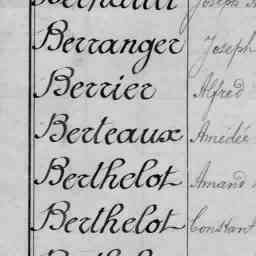 Bernault Joseph
Berranger Joseph
Berrier Alfred
Berteaux Amédée
Berthelot Amand
Berthelot Constant